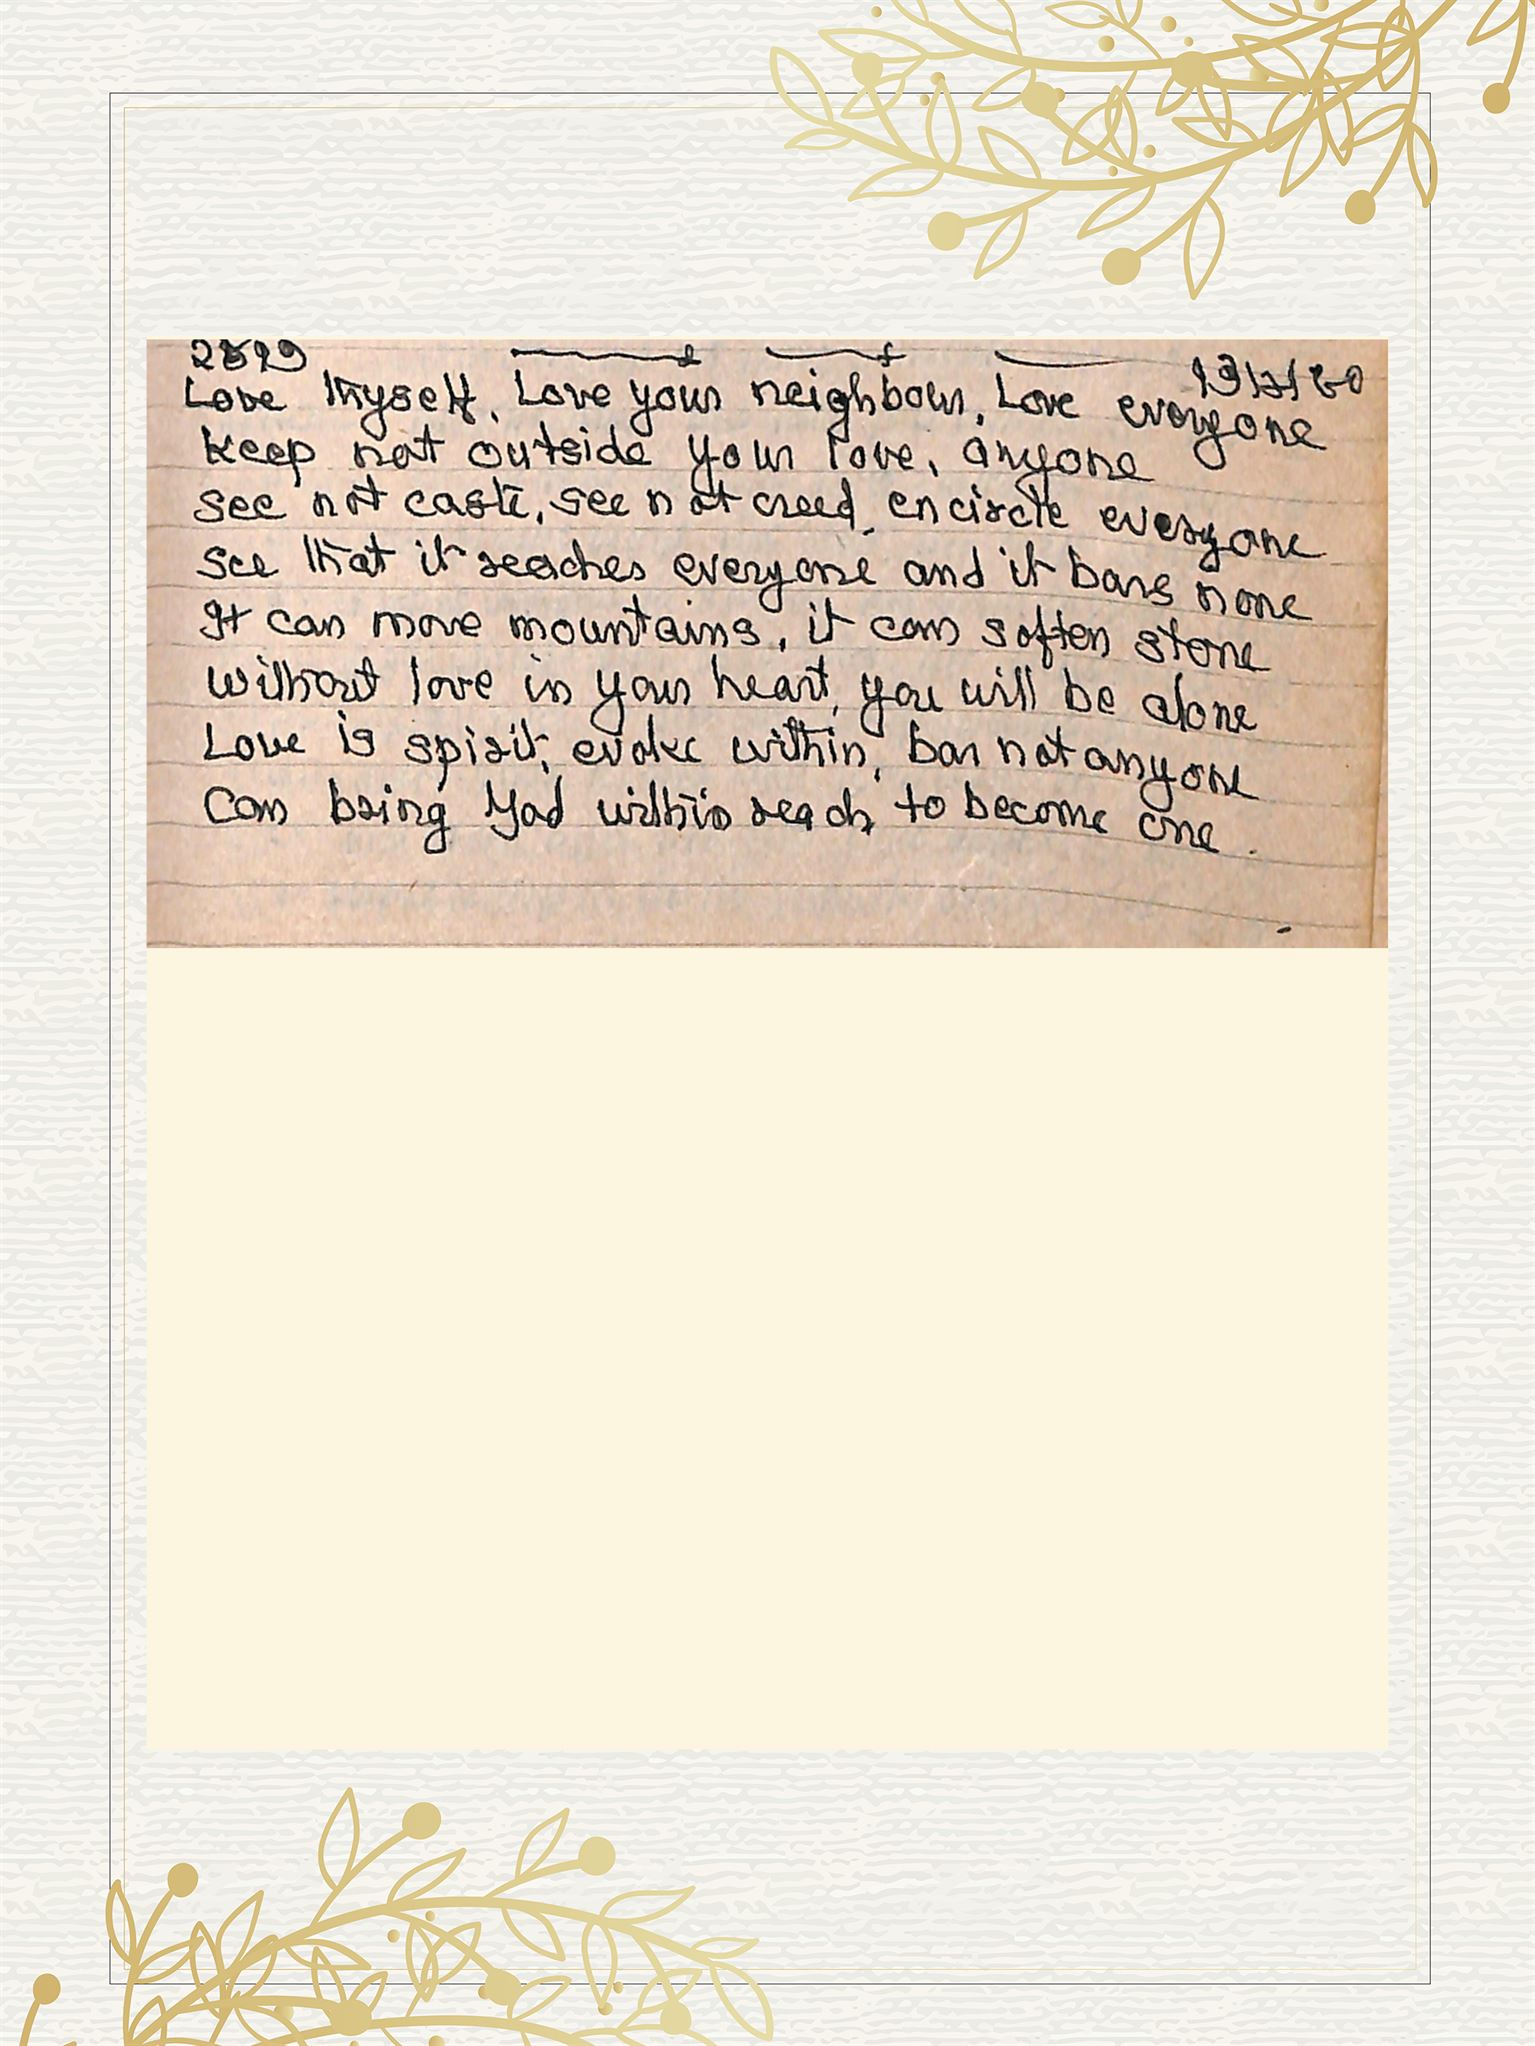 Love thyself, Love your neighbour, Love everyone
Keep not outside your love, anyone
See not caste, see not creed, encircle everyone
See that it reaches everyone and it bars none
It can move mountains, it can soften stone
Without love in your heart, you will be alone
Love is spirit, evoke within, bar not anyone
Can bring God within reach, to become one.